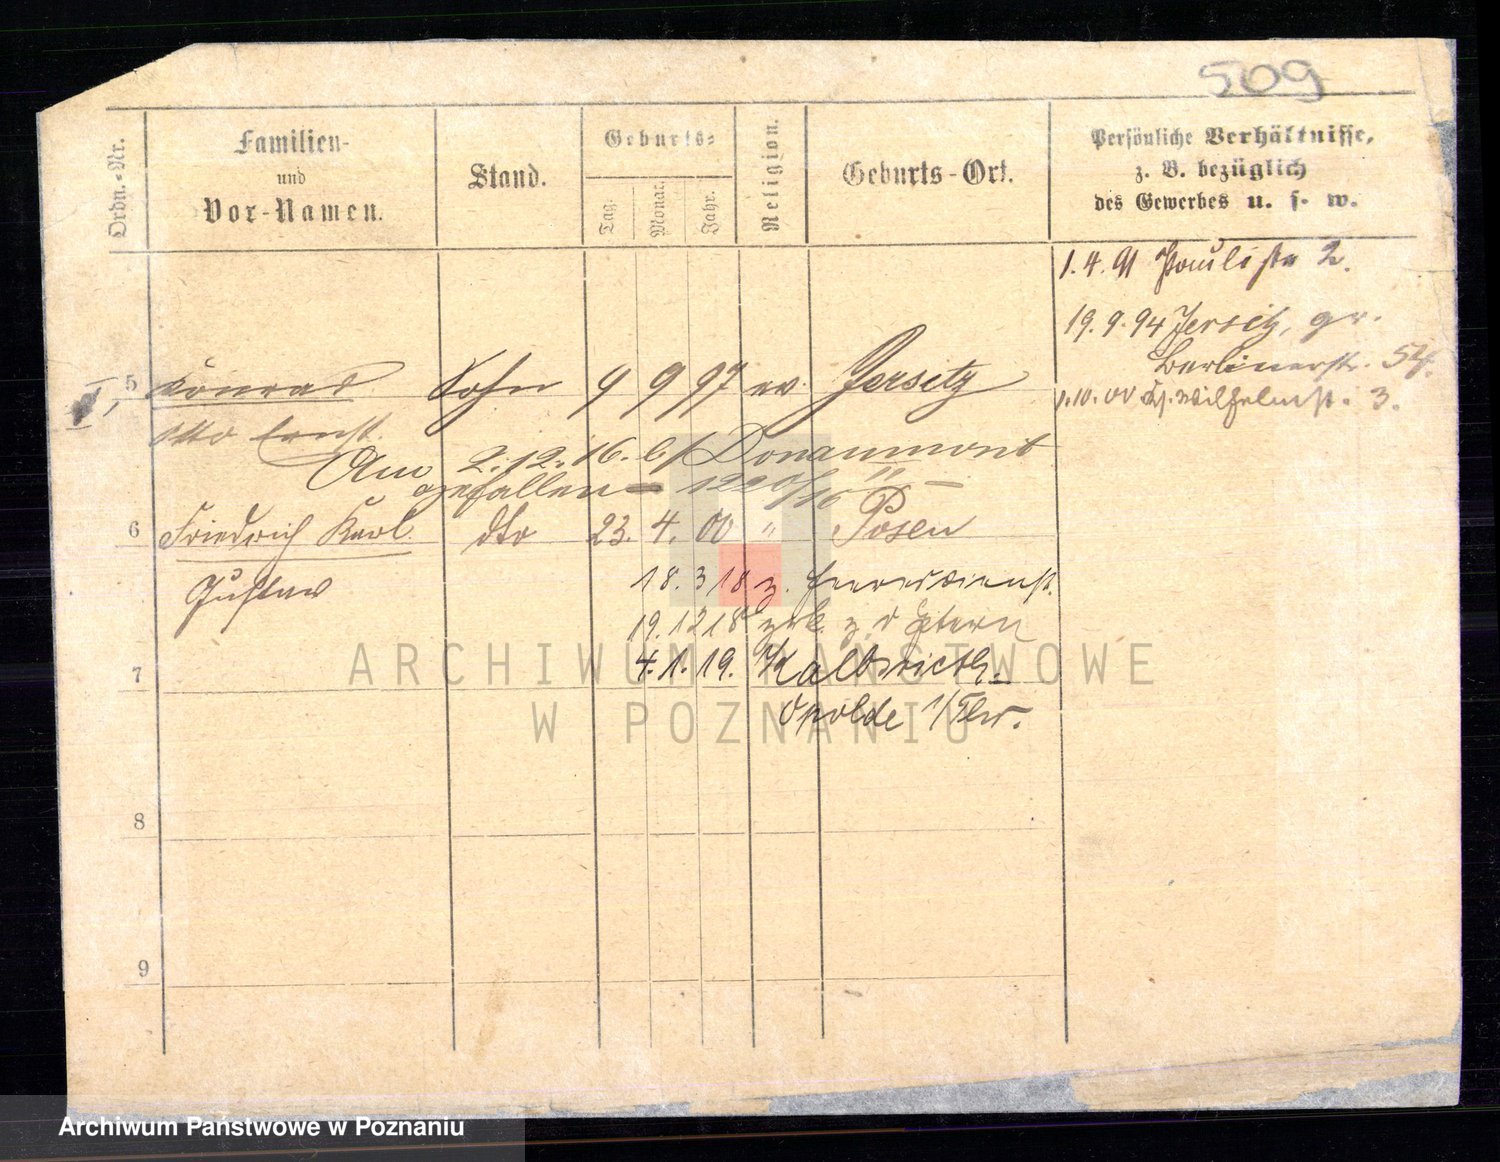 509
Ordn.-Nr.
Familien-
und
Vor-Namen.
Stand.
Geburts-
Tag.
Monat.
Jahr.
Religion.
Geburts-Ort.
Persönliche Verhältnisse,
z. B. bezüglich
des Gewerbes u. s. w.
1.4.91 Paulistr 2.
19.9.94 Jersitz, gr.
Berlinerstr. 54.
1.10.00 Wilhelmstr. 3.
5 Konrad Sohn 9 9 97 ev. Jersitz
Otto Ernst
Am 2.12.16. b/ Douaumont
gefallen 1220/16
6 Friedrich Karl dto 23. 4. 00 " Posen
Gustav
18.3 18 z. Heeresdienst.
19.12 18 zrk. z. d Eltern
7 4.1.19. Kalbsrieth-
8
9
ARCHIWUM PAŃSTWOWE
W POZNANIU
Archiwum Państwowe w Poznaniu